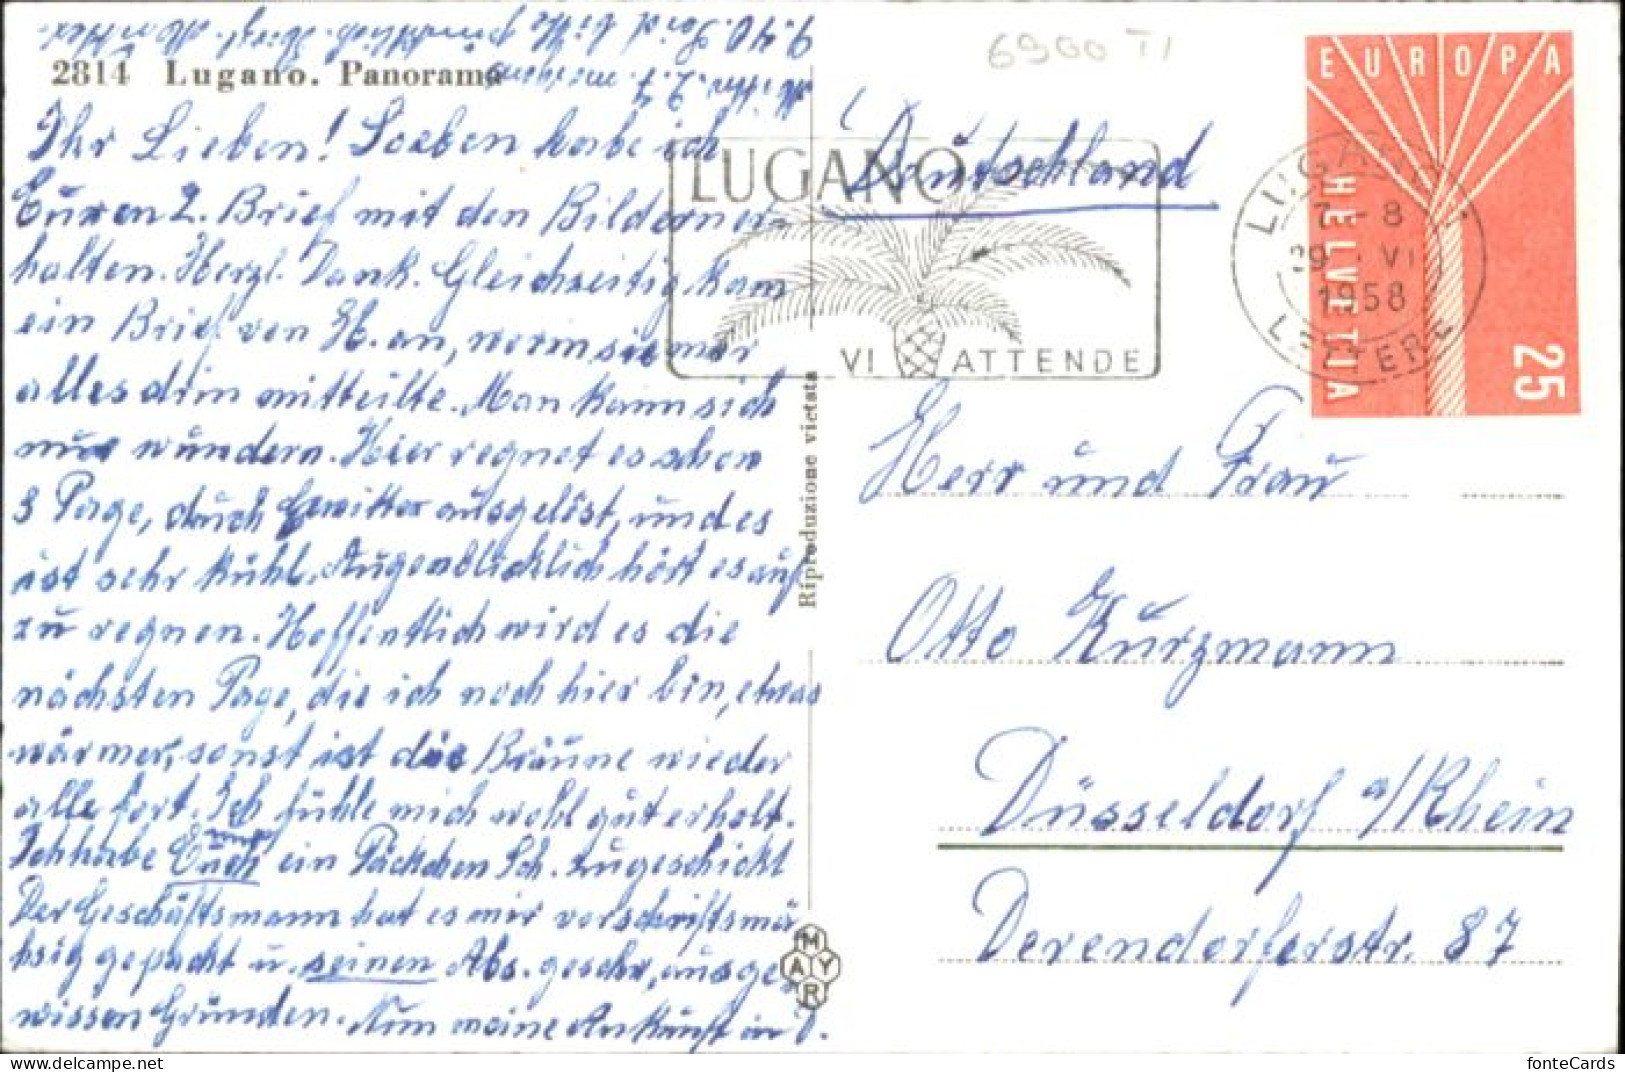 2814 Lugano. Panorama
Ihr Lieben! Soeben habe ich
Euren 2. Brief mit den Bildern er-
halten. Herzl. Dank. Gleichzeitig kam
ein Brief von H. an, worin sie mir
alles drin mitteilte. Man kann sich
nur wundern. Hier regnet es schon
3 Tage, durch Gewitter ausgelöst, und es
ist sehr kühl. Augenblicklich hört es auf
zu regnen. Hoffentlich wird es die
nächsten Tage, die ich noch hier bin, etwas
wärmer, sonst ist die Bräune wieder
alle fort. Ich fühle mich wohl gut erholt.
Ich habe Euch ein Päckchen Sch. zugeschickt
Der Geschäftsmann hat es mir vorschriftsmä-
ßig gepackt u. seinen Abs. geschr., aus ge-
wissen Gründen. Nun meine Ankunft in D.
9.40. Seid bitte pünktlich. Herzl. Mutter
Riproduzione vietata
MAYR
6900 TI
Deutschland
LUGANO
VI ATTENDE
LUGANO
7-8
29 VI
1958
LETTERE
EUROPA
HELVETIA
25
Herr und Frau
Otto Kurzmann
Düsseldorf a/Rhein
Derendorferstr. 87
fonteCards